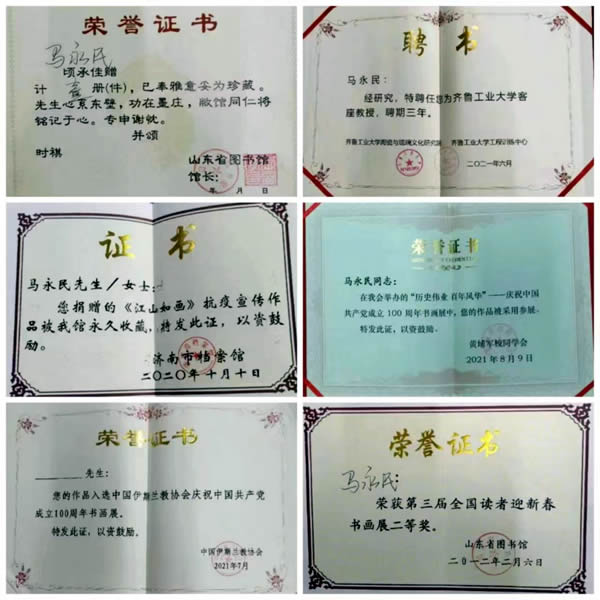 荣誉证书
马永民
顷承佳赠
计 壹 册(件)，已奉雅意妥为珍藏。
先生心系东壁，功在墨庄，敝馆同仁将
铭记于心。专申谢忱。
并颂
时祺
山东省图书馆
馆长：
年 月 日
聘书
马永民：
经研究，特聘任您为齐鲁工业大学客
座教授，聘期三年。
齐鲁工业大学陶瓷与琉璃文化研究院 齐鲁工业大学工程训练中心
二〇二一年六月
证书
马永民先生/女士：
您捐赠的《江山如画》抗疫宣传作
品被我馆永久收藏，特发此证，以资鼓
励。
济南市档案馆
二〇二〇年十月十日
荣誉证书
马永民同志：
在我会举办的“历史伟业 百年风华”——庆祝中国
共产党成立 100 周年书画展中，您的作品被采用参展。
特发此证，以资鼓励。
黄埔军校同学会
2021年8月9日
荣誉证书
先生：
您的作品入选中国伊斯兰教协会庆祝中国共产党
成立100周年书画展。
特发此证，以资鼓励。
中国伊斯兰教协会
2021年7月
荣誉证书
马永民：
荣获第三届全国读者迎新春
书画展二等奖。
山东省图书馆
二〇一二年二月六日